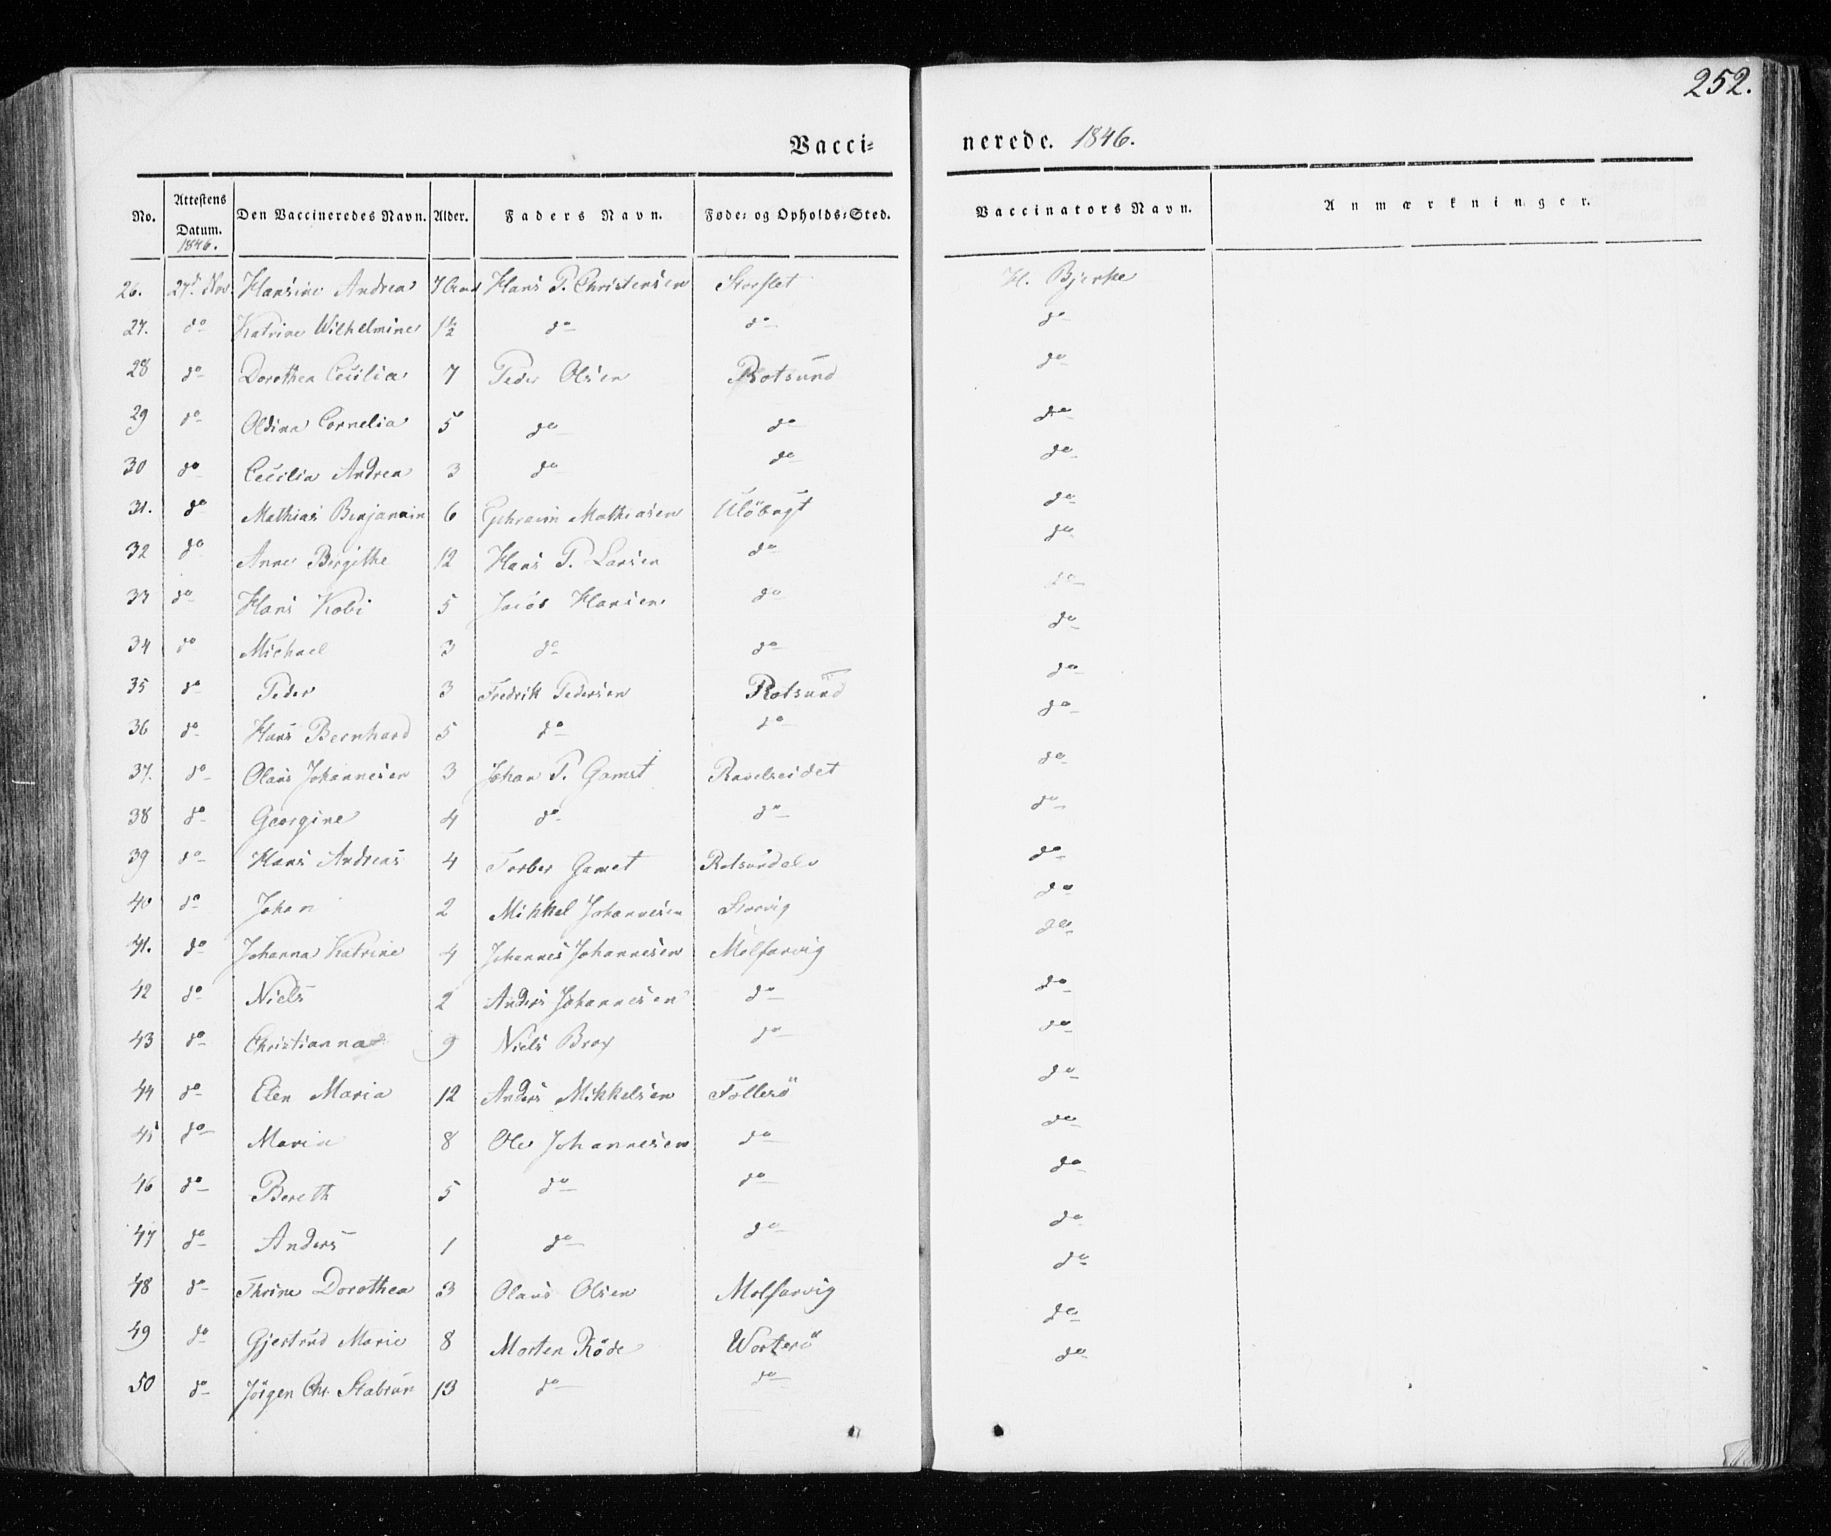 252.
Vacci= nerede. 1846.
No. Attestens Datum. 1846. Den Vaccineredes Navn. Alder. Faders Navn. Føde= og Opholds=Sted. Vaccinators Navn. Anmærkninger.
26. 27d Nov. Hansine Andrea Hans P. Christensen Storslet H. Bjerke
27. do Katrine Wilhelmine 1½ do do do
28 do Dorothea Cecilia 7 Peder Olsen Rotsund do
29 do Oldina Cornelia 5 do do do
30 do Cecilia Andrea 3 do do do
31. do Mathias Benjamin 6 Ephraim Mathiasen Ulöbugt do
32 do Anne Birgithe 12 Hans P. Larsen do do
33 do Hans Kobi 5 Jacob Hansen do do
34 do Michael 3 do do do
35 do Peder 3 Fredrik Pedersen Rotsund do
36 do Hans Bernhard 5 do do do
37. do Olaus Johannesen 3 Johan P. Gamst Ravelseidet do
38 do Georgine 4 do do do
39 do Hans Andreas 4 Torber Gamst Rotsundalv do
40 do Johan 2 Mikkel Johannesen Storvig do
41. do Johanna Katrine 4 Johannes Johannesen Molfarvig do
42 do Niels 2 Anders Johannesen do do
43 do Christianna 9 Niels Brox do do
44 do Elen Maria 12 Anders Mikkelsen Follesö do
45 do Maria 8 Ole Johannesen do do
46 do Bereth 5 do do do
47 do Anders 1 do do do
48 do Thrine Dorothea 3 Olaus Olsen Molfarvig do
49 do Gjertrud Marie 8 Morten Röde Worterö do
50 do Jörgen Chr. 13 do do do